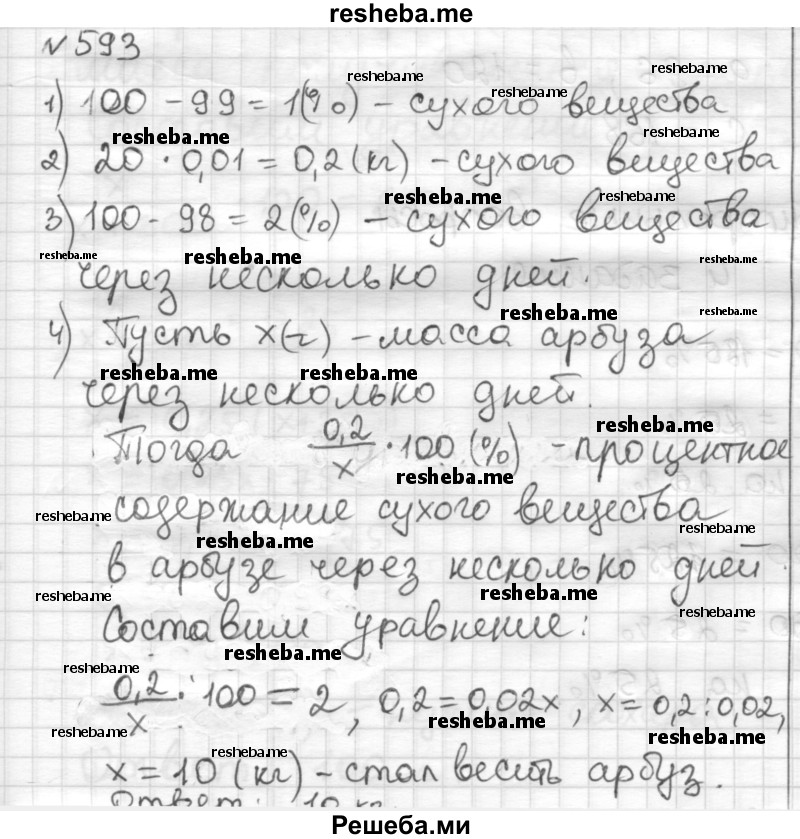 resheba.me
№593
resheba.me resheba.me
1) 100 - 99 = 1(%) - сухого вещества
resheba.me resheba.me resheba.me
2) 20 · 0,01 = 0,2 (кг) - сухого вещества
resheba.me resheba.me
3) 100 - 98 = 2(%) - сухого вещества
resheba.me resheba.me resheba.me
через несколько дней.
resheba.me resheba.me
4) Пусть x(г) - масса арбуза
resheba.me resheba.me
через несколько дней.
resheba.me
Тогда 0,2/x · 100 (%) - процентное
resheba.me
содержание сухого вещества
resheba.me resheba.me
resheba.me
в арбузе через несколько дней
resheba.me resheba.me
resheba.me
Составим уравнение:
resheba.me
resheba.me
0,2/x · 100 = 2, 0,2 = 0,02x, x = 0,2 : 0,02,
resheba.me
resheba.me resheba.me
resheba.me
x = 10 (кг) - стал весить арбуз.
Ответ: 10 кг
Решеба.ми